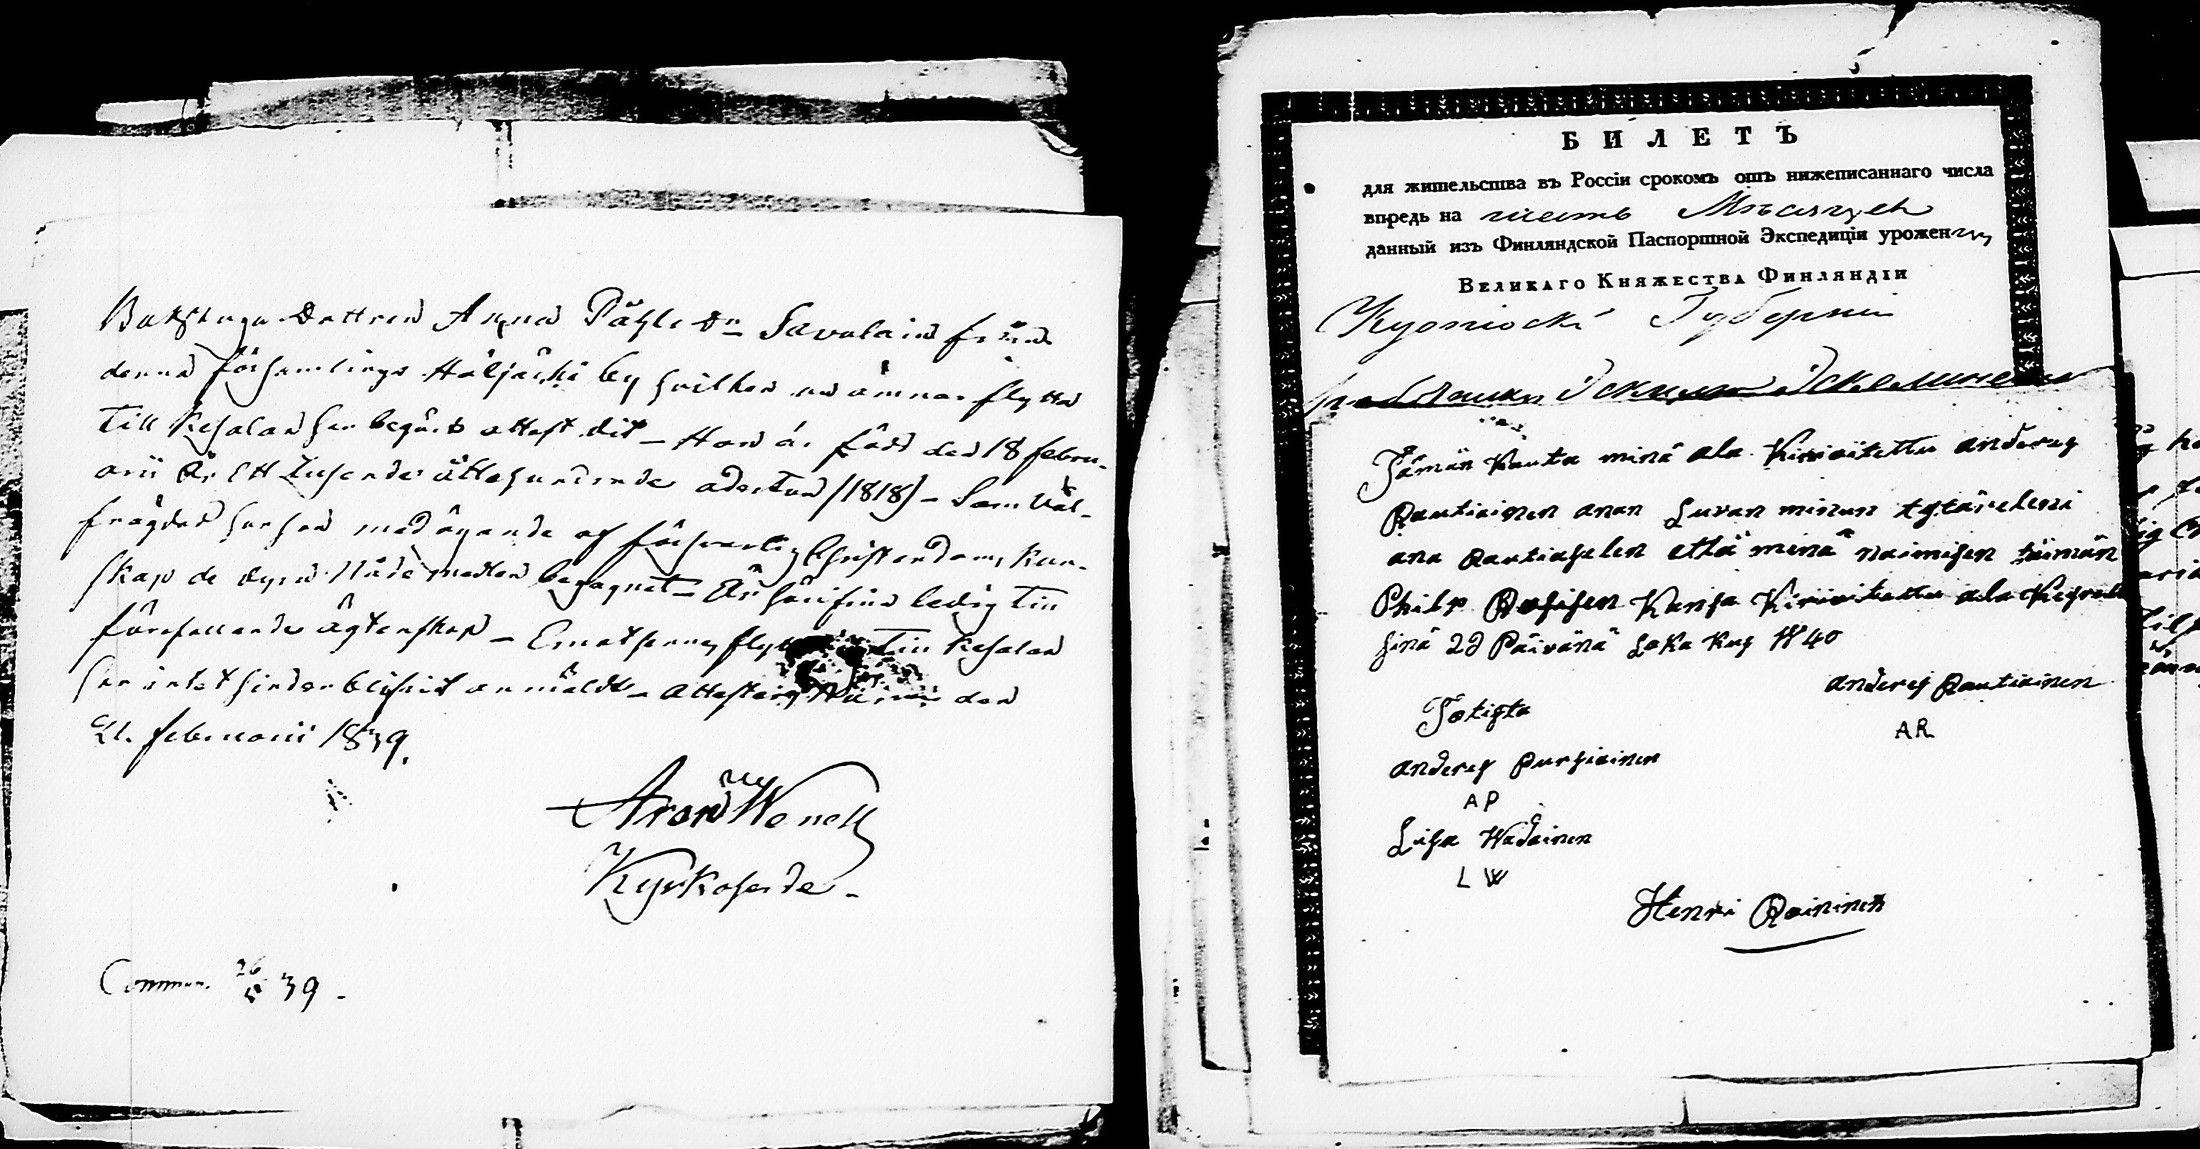 Backstugu Dottren Anna Påhls Dr Savolain från
denna församlings Häljäski by hvilken nu ämnar flytta
till Kesalax har begärt attest dit – Hon är född den 18 febru-
arii År Ett Tusende åttahundrade aderton (1818) – Som väl-
frägdad
skap de dyra Nådemedlen begagnat – Är härifrån ledig till
förefallande ägtenskap – Emot hennes flyttning till Kesalax
har intet hinder blifvit anmäldt – Attesterar den
21. februarii 1839.
Aron Wenell
Kyrkoherde –
Commun. 26/5 39 –
БИЛЕТЪ
для жительства въ Россіи срокомъ отъ нижеписаннаго числа
впредь на шесть Мѣсяцев
данный изъ Финляндской Паспортной Экспедиціи урожен
Великаго Княжества Финляндіи
Куопіоскі Губерніи
Tämän kautta minä ala kirioitettu anderes
Rautiainen anan Luvan minun tytärelleni
ana Rautiaselen että menä naimisen tämän
Philp Kansa Kirioitettu ala
sinä 29 Päivänä Loka kus 1840
anderes Rautiainen
AR
Totista
anderes Pursiainen
AP
Lisa Wadainen
L W
Henri Roininen